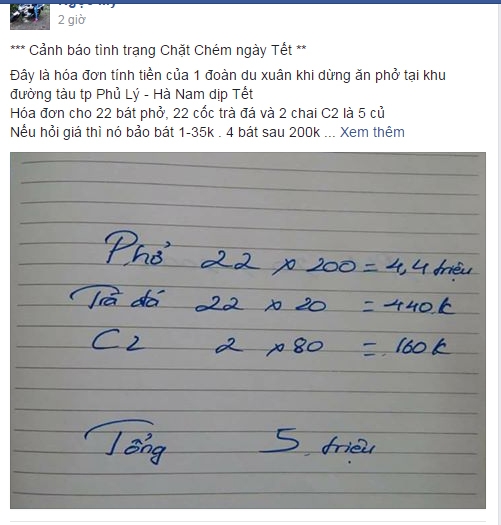 2 giờ
*** Cảnh báo tình trạng Chặt Chém ngày Tết **
Đây là hóa đơn tính tiền của 1 đoàn du xuân khi dừng ăn phở tại khu
đường tàu tp Phủ Lý - Hà Nam dịp Tết
Hóa đơn cho 22 bát phở, 22 cốc trà đá và 2 chai C2 là 5 củ
Nếu hỏi giá thì nó bảo bát 1-35k . 4 bát sau 200k ... Xem thêm
Phở 22 x 200 = 4,4 triệu
Trà đá 22 x 20 = 440k
C2 2 x 80 = 160k
Tổng 5 triệu